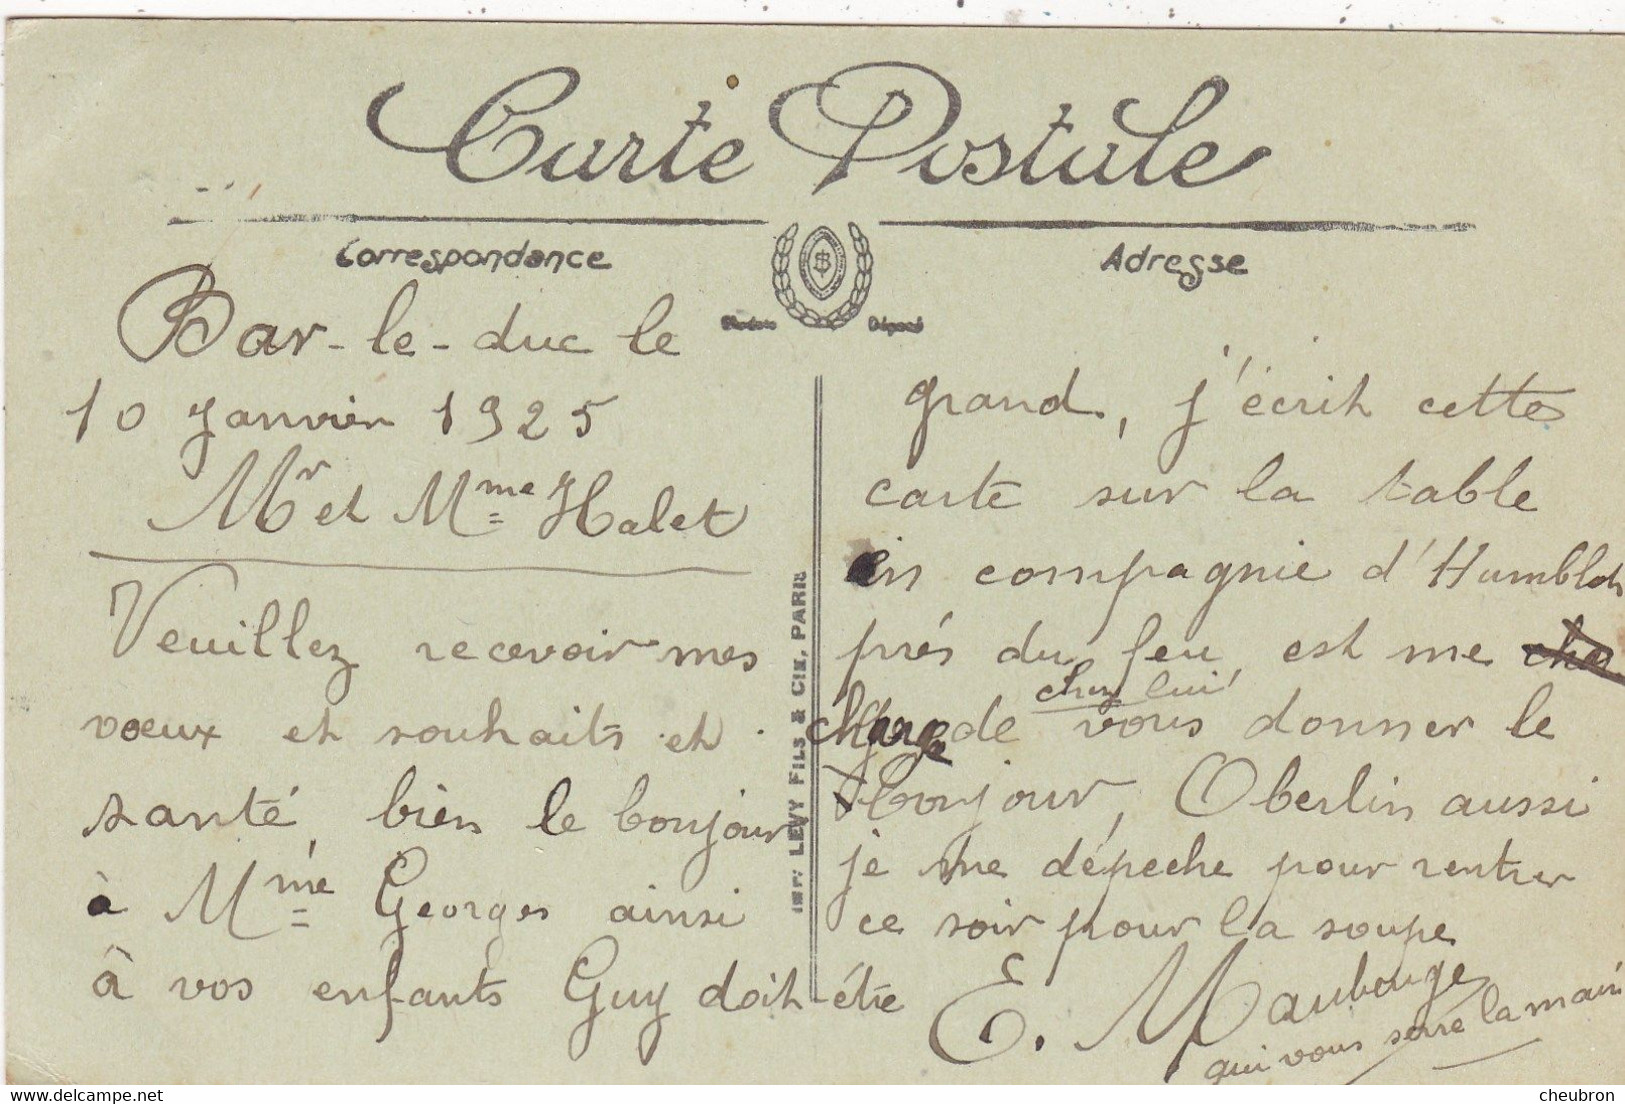 Carte Postale
Correspondance
Adresse
Modèle Déposé
Bar-le-duc le
10 Janvier 1925
Mr et Mme Halet
Veuillez recevoir mes
voeux et souhaits et
santé, bien le bonjour
à Mme Georges ainsi
à vos enfants Guy doit être
grand, j'écrit cette
carte sur la table
en compagnie d'Humblot
près du feu, est me
chez lui
charge de vous donner le
bonjour, Oberlin aussi
je me dépeche pour rentrer
ce soir pour la soupe
E. Maubouge
qui vous serre la main
IMP. LEVY FILS & CIE, PARIS
cheubron